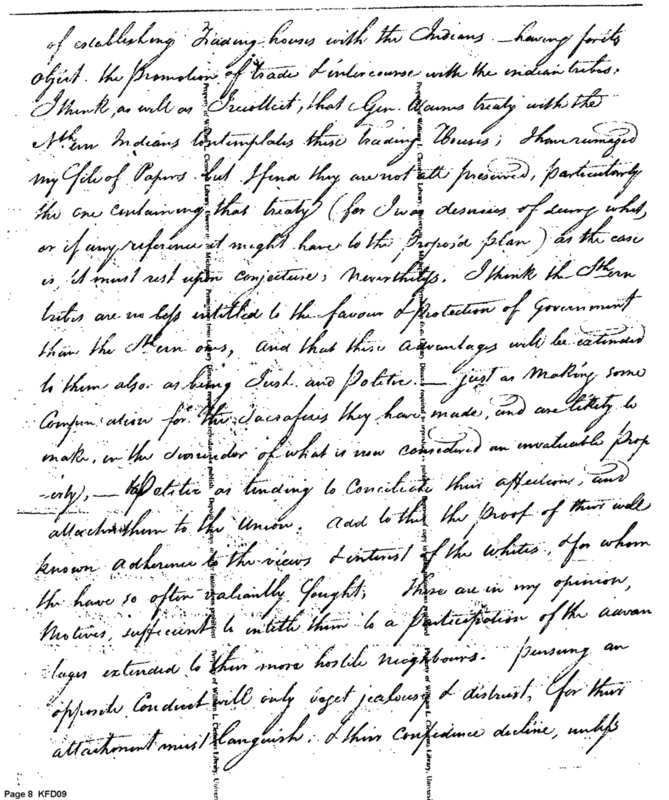 of establishing Trading houses with the Indians - having for its
object the promotion of trade & intercourse with the indian tribes.
I think, as well as I recollect, that Gen. treaty with the
Nthern Indians contemplates these trading Houses; I have rumaged
my file of Papers but I find they are not all preserved, particularly
the one containing that treaty (for I was desirous of seing what,
or if any reference it might have to the Propos'd plan) as the case
is, it must rest upon conjecture; Neverthelefs. I think the Sthern
tribes are no lefs entitled to the favour & Protection of Government
than the Nthern ones, and that these advantages will be extended
to them also. as being Just and Politic. - just as making some
Compensation for the Sacrafices they have made, and are likely to
make, in the Surrender of what is now considered an invaluable prop
-erty), - Politic as tending to Conciliate their affections, and
attach them to the Union. add to this the proof of their well
known adherence to the views & interest of the Whites, & for whom
the have so often valiantly fought. These are in my opinion,
Motives, sufficient to intitle them to a Participation of the advan
tages extended to their more hostile neighbours. pursuing an
opposite Conduct will only beget jealousy & distrust, for their
attachment must languish, & their confidence decline, unlefs
Property of William L. Clements Library, University
Property of William L. Clements Library, University
Page 8 KFD09